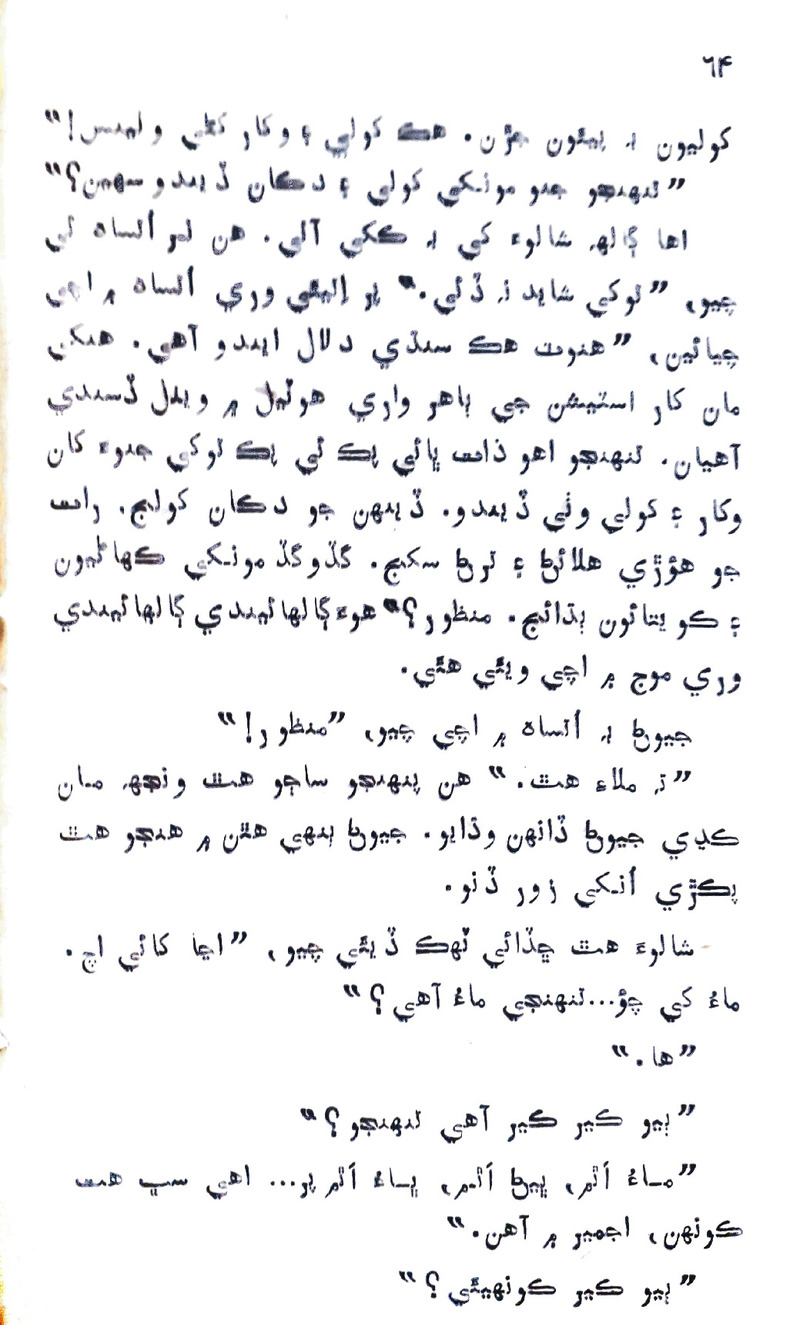 ۶۴
کوليون بہ ٻيئون جڙن. هڪ کولي ۽ وکار کڻي وليس!“
”تنهنجو جدو مونکي کولي ۽ دڪان ڏيندو سهين؟“
اها ڳالهہ شالوءَ کي بہ ڪڪي آئي. هن لہر اُتساہ لي
چيو، ”توکي شايد نہ ڏئي.“ پر اِليئي وري اُتساہ ۾ اچي
چيائين، ”هنوت هڪ سنڌي دلال ايندو آهي. هنکي
مان کار اسٽيشن جي ٻاهر واري هوٽيل ۾ ويٺل ڏسندي
آهيان. تنهنجو اهو ذات ڀائي پڪ ئي پڪ توکي جدوءَ کان
وکار ۽ کولي وٺي ڏيندو. ڏينهن جو دڪان کولج. رات
جو هوڙي هلائڻ ۽ ترڻ سکج. گڏوگڏ مونکي ڪهاڻيون
۽ ڪويتائون ٻڌائج. منظور؟“ هوءَ ڳالهائيندي ڳالهائيندي
وري موج ۾ اچي ويئي هئي.
جيوڻ بہ اُتساہ ۾ اچي چيو، ”منظور!“
”تہ ملاءِ هٿ.“ هن پنهنجو ساڄو هٿ ونجهہ مان
ڪڍي جيوڻ ڏانهن وڌايو. جيوڻ ٻنهي هٿن ۾ هنجو هٿ
پڪڙي اُنکي زور ڏنو.
شالوءَ هٿ ڇڏائي ٽهڪ ڏيئي چيو، ”اڇا کائي اچ.
ماءُ کي چؤ...تنهنجي ماءُ آهي؟“
”ها.“
”ٻيو ڪير ڪير آهي تنهنجو؟“
”ماءُ اَٿم، ڀيڻ اَٿم، ڀاءُ اَٿم پر... اهي سڀ هت
ڪونهن، اجمير ۾ آهن.“
”ٻيو ڪير ڪونهيئي؟“